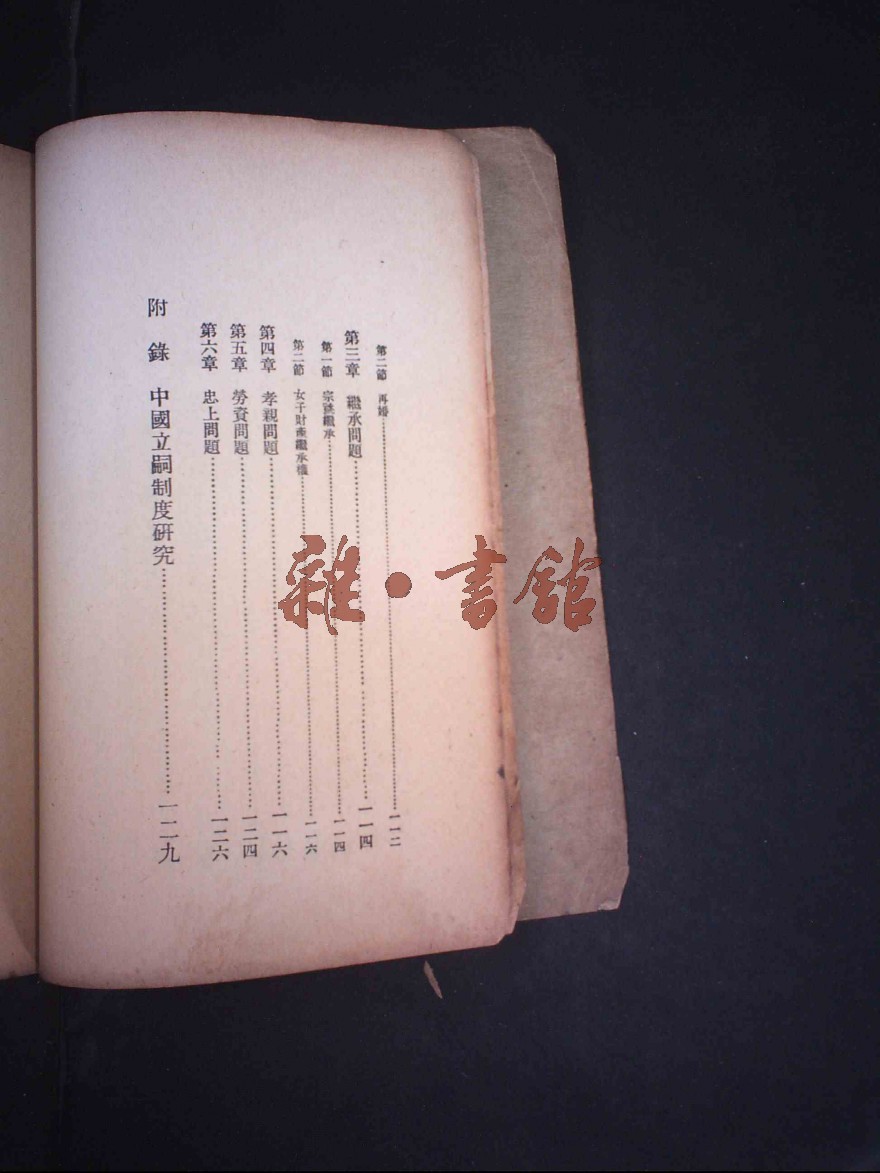 第二節 再婚……一一二
第三章 繼承問題……一一四
第一節 宗祧繼承……一一四
第二節 女子財產繼承權……一一六
第四章 孝親問題……一一六
第五章 勞資問題……一二四
第六章 忠上問題……一二六
附錄 中國立嗣制度研究……一二九
雜·書館